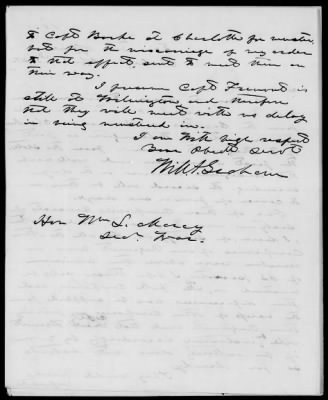 to Capt Bocke at Charlotte for muster,
but for the miscarriage of my order
to that effect, sent to meet them on
their way.
I presume Capt Fremont is
still at Wilmington, and therefore
that they will meet with no delay
in being mustered in.
I am with high respect
Your Obedt. Servt
Will A. Graham
Hon Wm L. Marcy
Secy War.